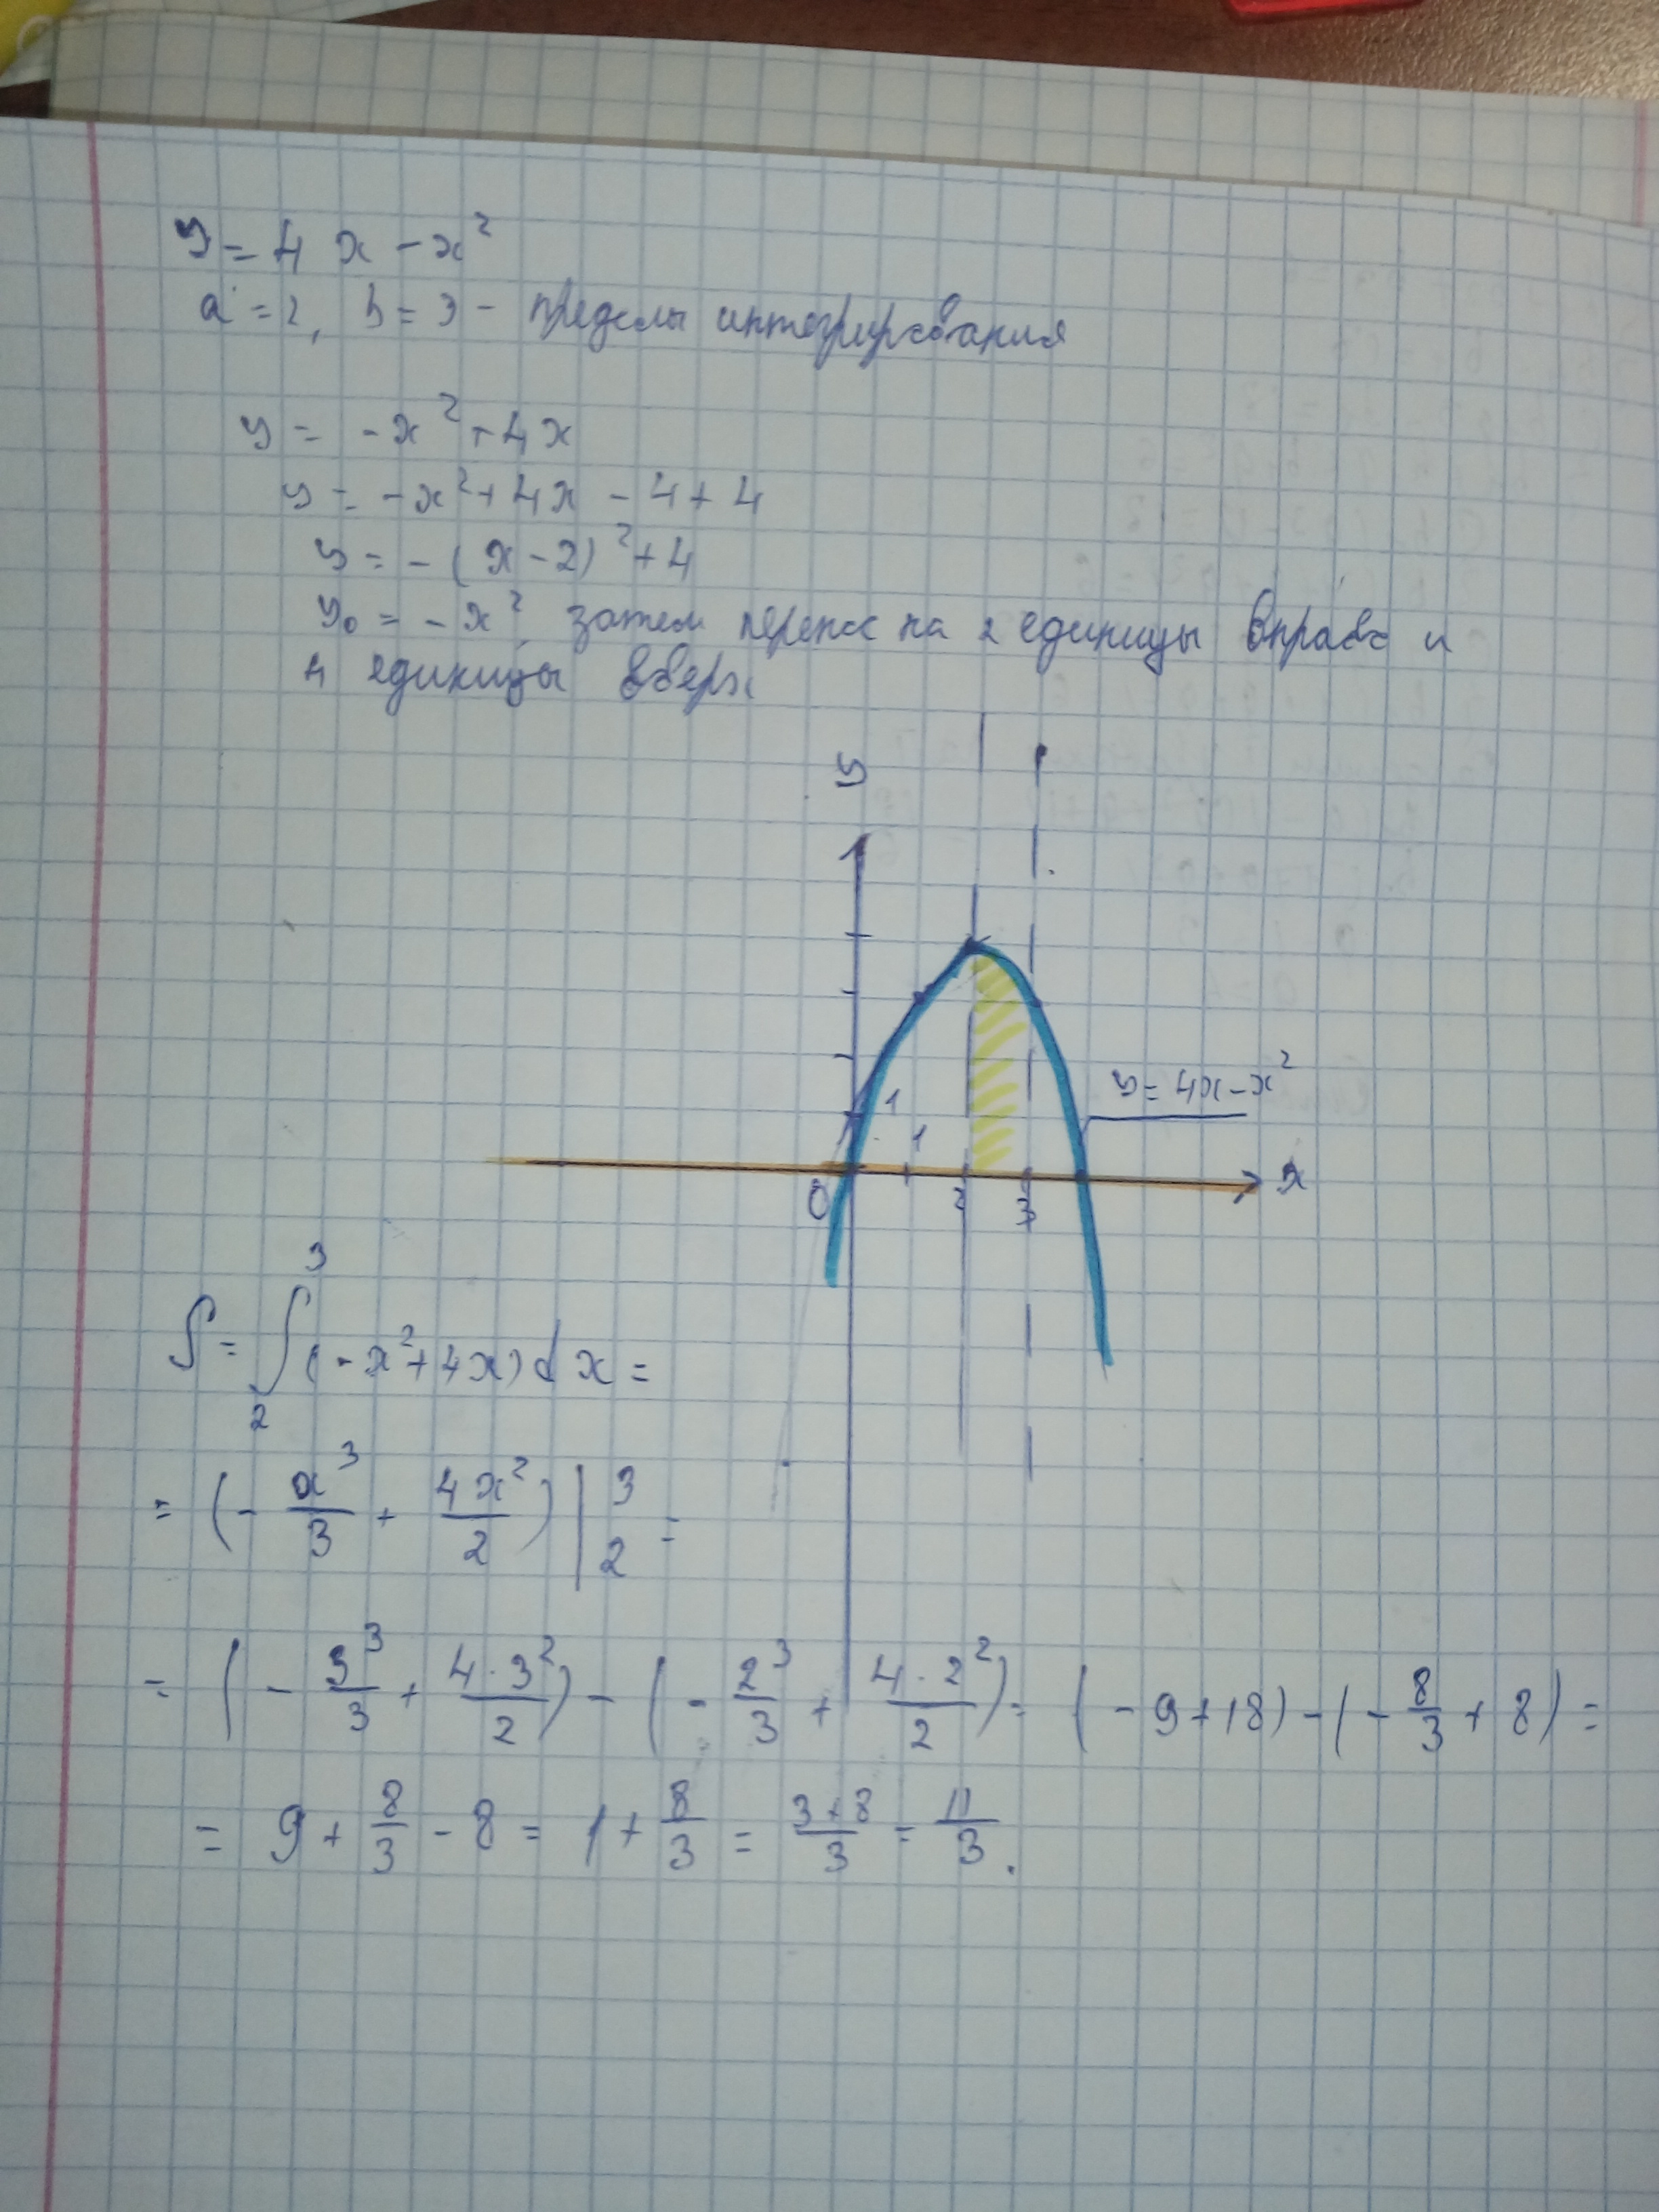 y = 4x - x²
a = 2, b = 3 - пределы интегрирования
y = -x² + 4x
y = -x² + 4x - 4 + 4
y = -(x - 2)² + 4
y₀ = -x², затем перенос на 2 единицы вправо и
4 единицы вверх
y
y = 4x - x²
1
1
0 2 3 x
S = ∫₂³ (-x² + 4x) dx =
= (- x³/3 + 4x²/2) |₂³ =
= (- 3³/3 + 4·3²/2) - (- 2³/3 + 4·2²/2) = (-9 + 18) - (- 8/3 + 8) =
= 9 + 8/3 - 8 = 1 + 8/3 = (3+8)/3 = 11/3.